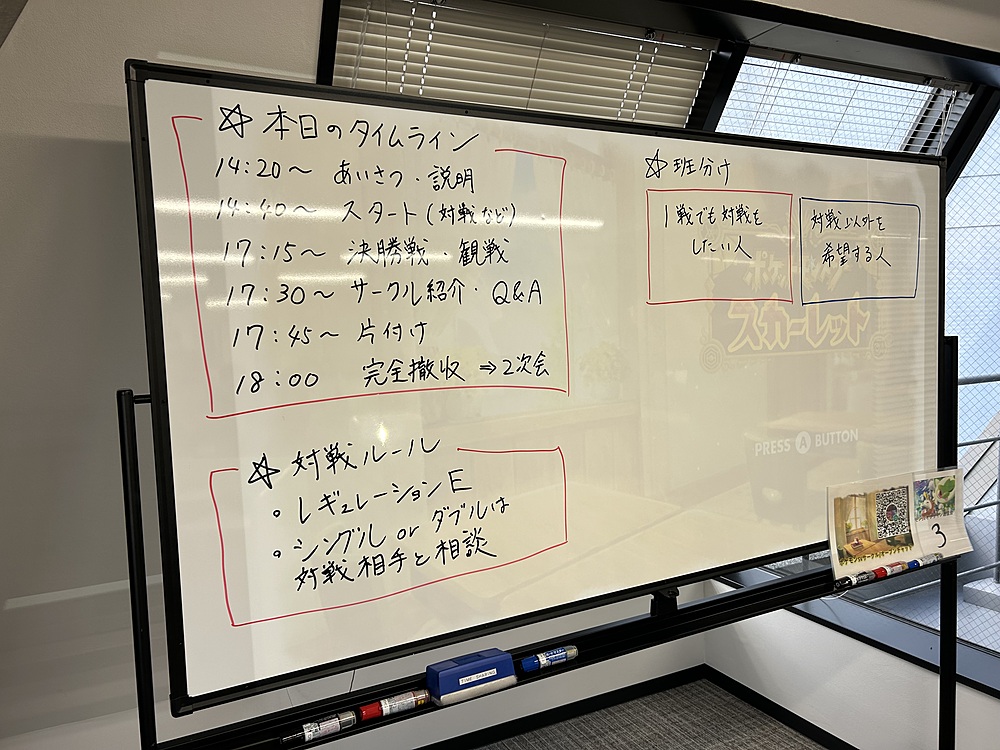 ☆本日のタイムライン
14:20～ あいさつ・説明
14:40～ スタート(対戦など)
17:15～ 決勝戦・観戦
17:30～ サークル紹介・Q&A
17:45～ 片付け
18:00 完全撤収 ⇒2次会
☆対戦ルール
。レギュレーションE
。シングル or ダブルは
対戦相手と相談
☆班分け
1戦でも対戦を
したい人
対戦以外を
希望する人
スカーレット
PRESS A BUTTON
3
TIME SHARING